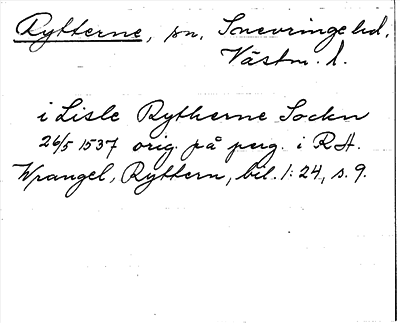 Rytterne, sn, Snevringe hd.
Västm. l.
i Lisle Rytherne Sockn
26/5 1537 orig. på perg. i RA.
Wrangel, Ryttern, bil. 1:24, s. 9.